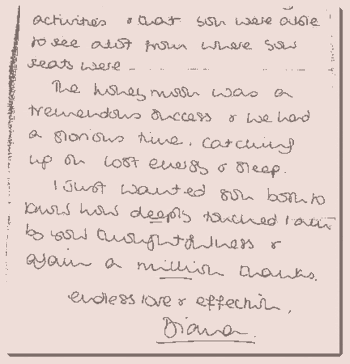 activities & that you were able
to see alot from where your
seats were
The honeymoon was a
tremendous success & we had
a glorious time, catching
up on lost energy & sleep.
I just wanted you both to
know how deeply touched I am
by your thoughtfulness &
again a million thanks.
endless love & affection,
Diana.